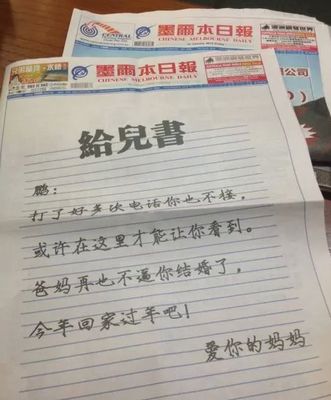 CENTRAL
墨爾本日報
CHINESE MELBOURNE DAILY
墨爾本日報
CHINESE MELBOURNE DAILY
給兒書
鹏：
打了好多次电话你也不接，
或许在这里才能让你看到。
爸妈再也不逼你结婚了，
今年回家过年吧！
爱你的妈妈